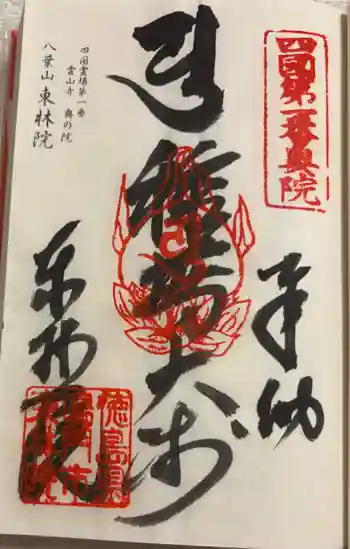 四国第一番奥院
奉納
種蒔大師
四国霊場第一番
霊山寺 奥の院
八葉山 東林院
東林院
徳島県